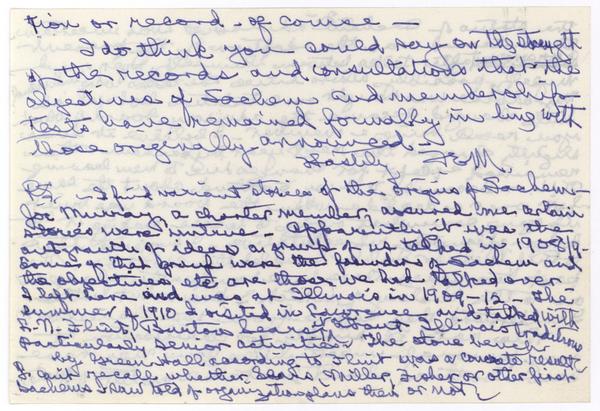 tion or record - of course -
I do think you could say on the strength
of the records and consultations that the
objectives of Sachem and membership
tests have remained formally in line with
those originally announced -
Hastily, F.M.
P.S. - I find variant stories of the origins of Sachem -
Joe Murray, a charter member, assured me certain
stories were untrue - Apparently it was the
outgrowth of ideas a group of us talked in 1908/9
Some of that group were the founders of Sachem and
the objectives etc are those we had talked over
I left here and was at Illinois in 1909-12 - The
summer of 1910 I visited in Lawrence and talked with
L.N. Flint, Burton Sears about Illinois traditions
particularly senior activities. The stone bench
by Green Hall according to Flint was a concrete result
I can't recall whether Sears, Miller, Fisher or other first
Sachems told of organization plans then or not